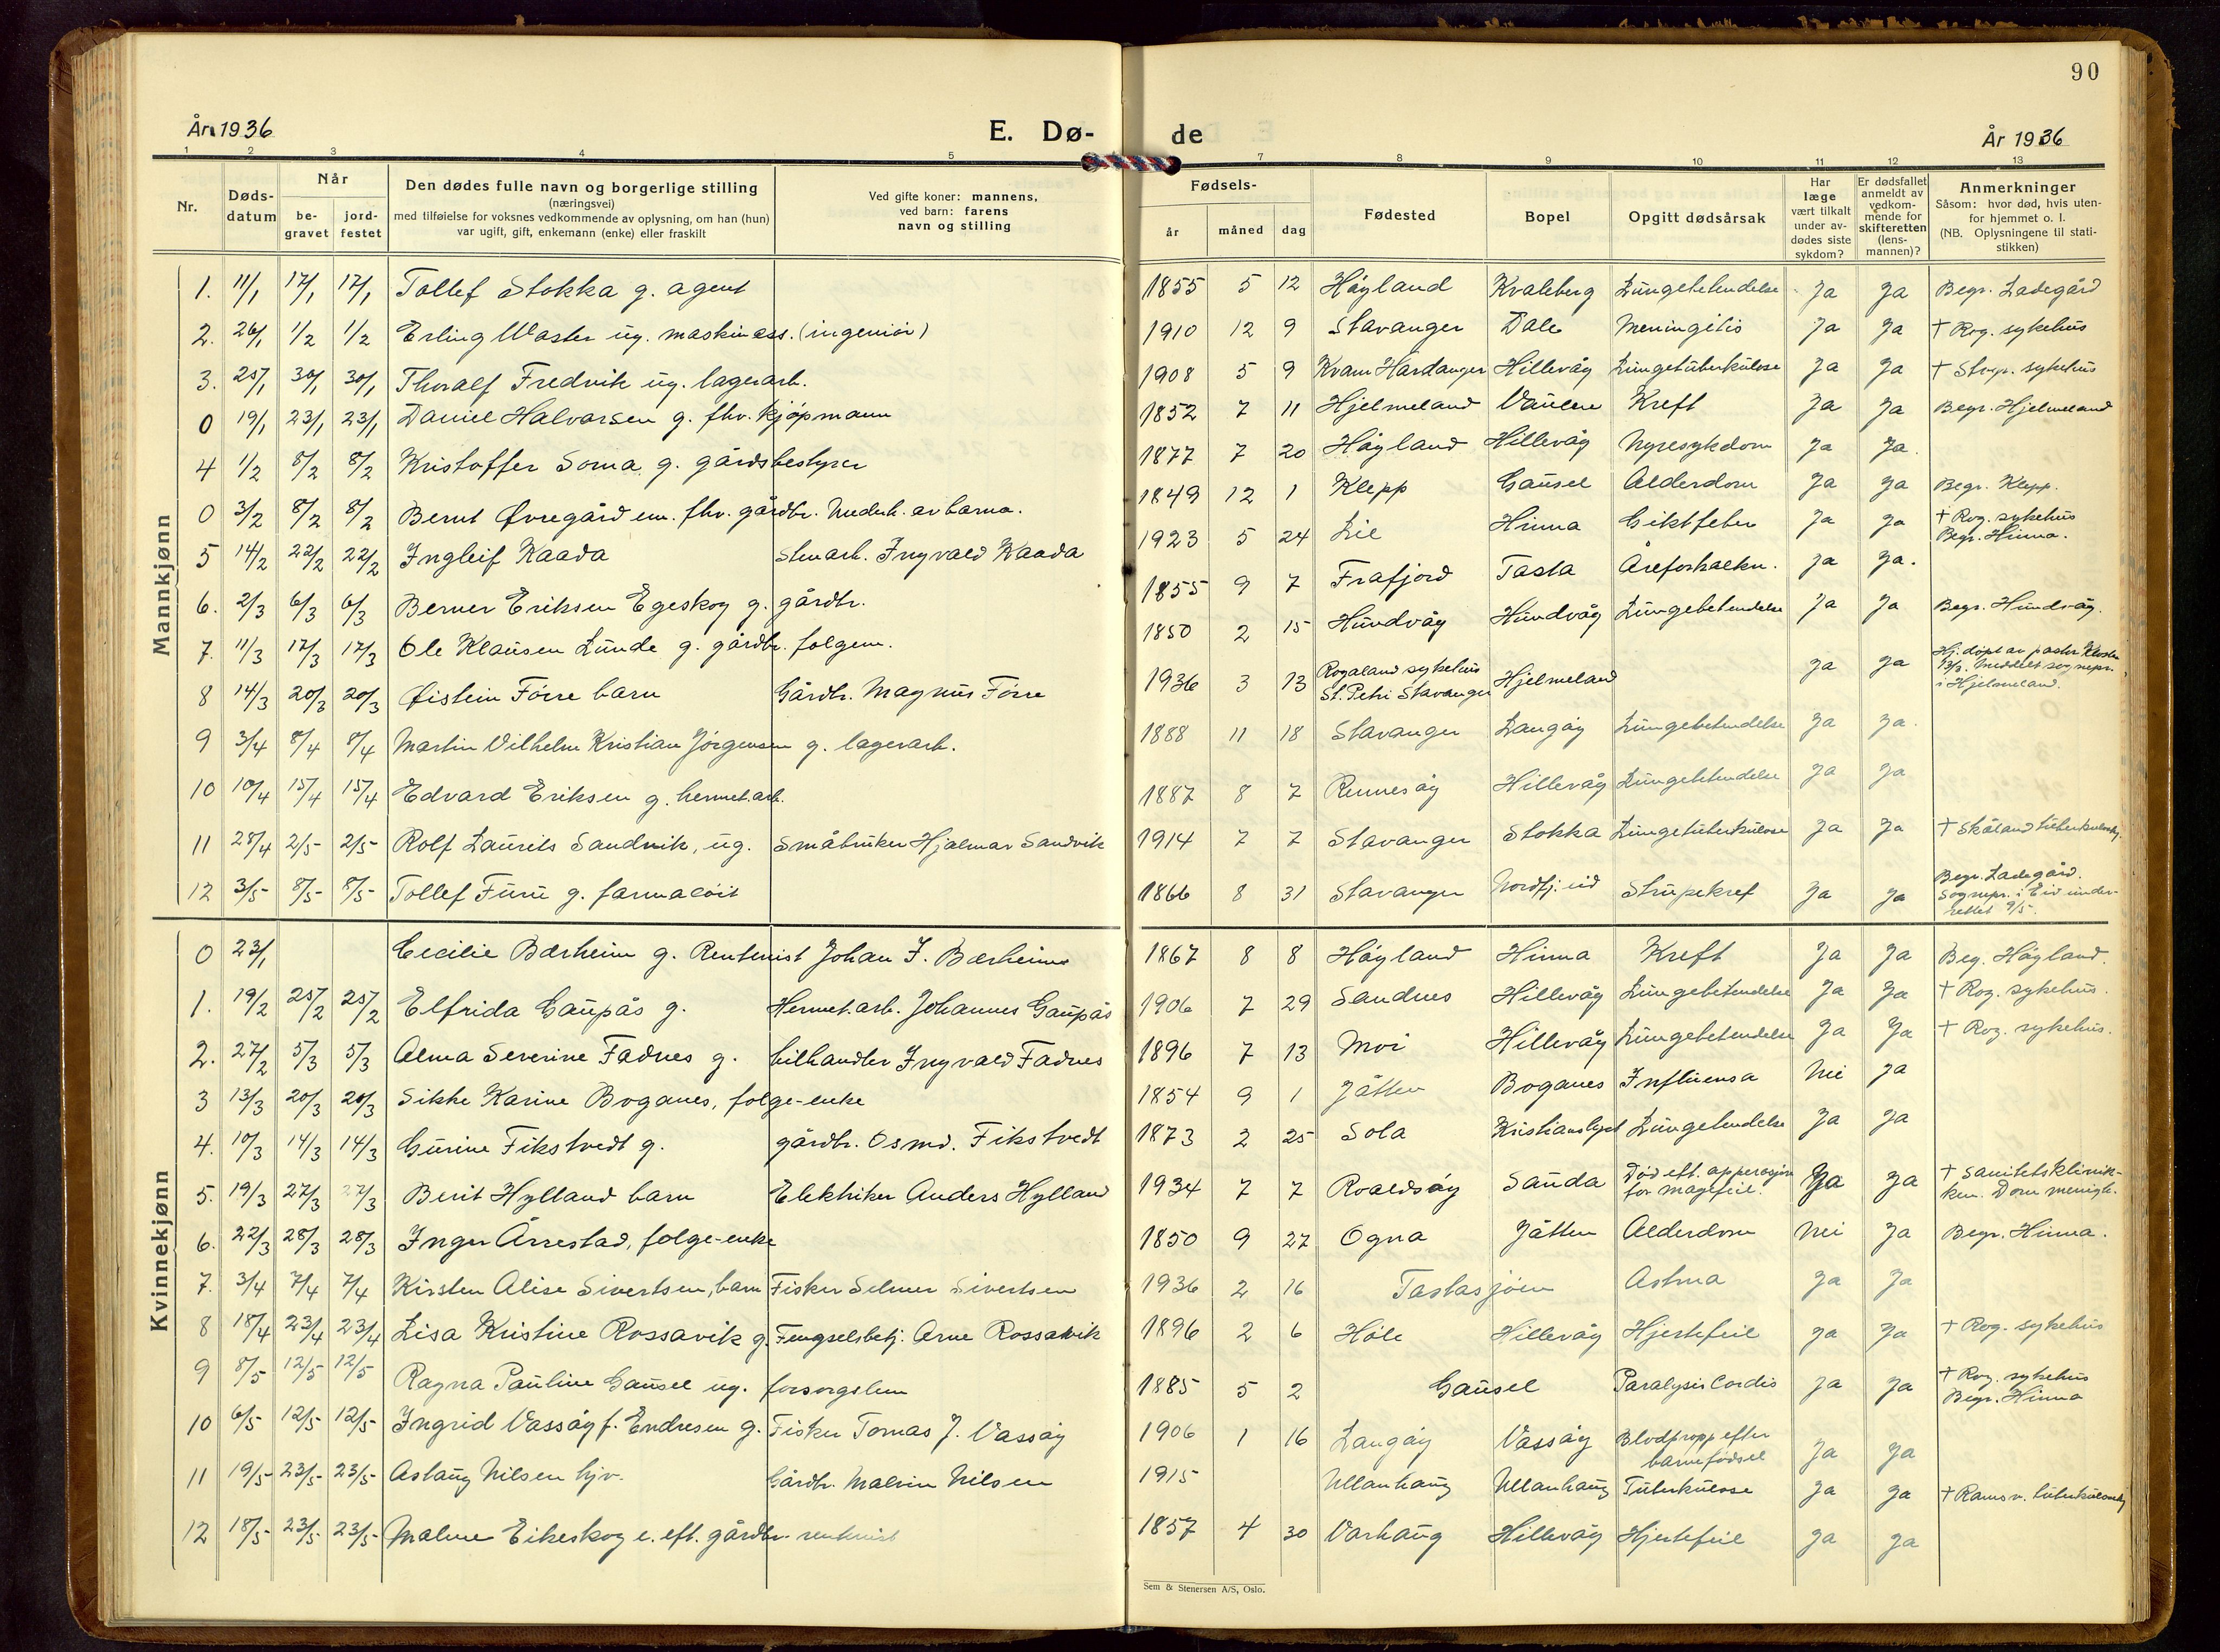 90
År 1936
E. Dø-
de
År 1936
1 2 3 4 5 7 8 9 10 11 12 13
Nr.
Døds-
datum
Når
be-
gravet
jord-
festet
Den dødes fulle navn og borgerlige stilling
(næringsvei)
med tilføielse for voksnes vedkommende av oplysning, om han (hun)
var ugift, gift, enkemann (enke) eller fraskilt
Ved gifte koner: mannens,
ved barn: farens
navn og stilling
Fødsels-
år måned dag
Fødested
Bopel
Opgitt dødsårsak
Har
læge
vært tilkalt
under av-
dødes siste
sykdom?
Er dødsfallet
anmeldt av
vedkom-
mende for
skifteretten
(lens-
mannen)?
Anmerkninger
Såsom: hvor død, hvis uten-
for hjemmet o. l.
(NB. Oplysningene til stati-
stikken)
Mannkjønn
1. 11/1 17/1 17/1 Tollef Stokka g. agent 1855 5 12 Høyland Kvaleberg Lungebetendelse Ja Ja Begr. Ladegård
2. 26/1 1/2 1/2 Erling Waster ug. maskinass. (ingeniør) 1910 12 9 Stavanger Dale Meningitis Ja Ja † Rog. sykehus
3. 25/1 30/1 30/1 Thoralf Fredvik ug. lagerarb. 1908 5 9 Kvam Hardanger Hillevåg Lungetuberkulose Ja Ja † Stvgr. sykehus
0 19/1 23/1 23/1 Daniel Halvorsen g. fhv. kjøpmann 1852 7 11 Hjelmeland Vaulen Kreft Ja Ja Begr. Hjelmeland
4 1/2 8/2 8/2 Kristoffer Soma g. gårdsbestyrer 1877 7 20 Høyland Hillevåg Nyresykdom Ja Ja
0 3/2 8/2 8/2 Bernt Øvregård em. fhv. gårdbr. Underh. av barna. 1849 12 1 Klepp Gausel Alderdom Ja Ja Begr. Klepp.
5 14/2 22/2 22/2 Ingleif Kaada Stenarb. Ingvald Kaada 1923 5 24 Lie Hinna Giktfeber Ja Ja † Rog. sykehus
Begr. Hinna.
6. 2/3 6/3 6/3 Berner Eriksen Egeskog g. gårdbr. 1855 9 7 Frafjord Tasta Åreforkalkn. Ja Ja.
7. 11/3 17/3 17/3 Ole Klausen Lunde g. gårdbr. folgem. 1850 2 15 Hundvåg Hundvåg Lungebetendelse Ja Ja Begr. Hundvåg.
8 14/3 20/3 20/3 Øistein Førre barn Gårdbr. Magnus Førre 1936 3 13 Rogaland sykehus
St. Petri Stavanger Hjelmeland Ja Ja Hj. døpt av pastor Kloster
13/3. Meddelt sognepr.
i Hjelmeland.
9 3/4 8/4 8/4 Martin Vilhelm Kristian Jørgensen g. lagerarb. 1888 11 18 Stavanger Langøy Lungebetendelse Ja Ja.
10 10/4 15/4 15/4 Edvard Eriksen g. hermet.arb. 1887 8 7 Rennesøy Hillevåg Lungebetendelse Ja Ja
11 28/4 2/5 2/5 Rolf Laurits Sandvik, ug. Småbruker Hjalmar Sandvik 1914 7 7 Stavanger Stokka Lungetuberkulose Ja Ja † Skåland tuberkulosehj.
12 3/5 8/5 8/5 Tollef Furu g. farmacøit 1866 8 31 Stavanger Nordfj.eid Strupekref Ja Ja Begr. Ladegård.
Sognepr. i Eid under-
rettet 9/5.
Kvinnekjønn
0 23/1 Cecilie Bærheim g. Rentenist Johan J. Bærheim 1867 8 8 Høyland Hinna Kreft Ja Ja Beg. Høyland.
1. 19/2 25/2 25/2 Elfrida Gaupås g. Hermet.arb. Johannes Gaupås 1906 7 29 Sandnes Hillevåg Lungebetendelse Ja Ja † Rog. sykehus.
2. 27/2 5/3 5/3 Alma Severine Fadnes g. bilhandler Ingvald Fadnes 1896 7 13 Moi Hillevåg Lungebetendelse Ja Ja † Rog. sykehus.
3 13/3 20/3 20/3 Sikke Karine Boganes, folge-enke 1854 9 1 Jåtten Boganes Influensa Nei Ja
4. 10/3 14/3 14/3 Gurine Fikstvedt g. gårdbr. Osmd. Fikstvedt 1873 2 25 Sola Kristianslyst Lungebetendelse Ja Ja
5. 19/3 27/3 27/3 Berit Hylland barn Elektriker Anders Hylland 1934 7 7 Roaldsøy Sauda Død eft. opperasjon
for magefeil. Ja Ja † Sanitetsklinik-
ken. Dom menigh.
6. 22/3 28/3 28/3 Inger Årrestad, folge-enke 1850 9 27 Ogna Jåtten Alderdom Nei Ja Begr. Hinna.
7. 3/4 7/4 7/4 Kirsten Alise Sivertsen, barn Fisker Selmer Sivertsen 1936 2 16 Tastasjøen Astma Ja Ja
8 18/4 23/4 23/4 Lisa Kristine Rossavik g. Fengselsbetj. Arne Rossavik 1896 2 6 Høle Hillevåg Hjertefeil Ja Ja † Rog. sykehus
9 8/5 12/5 12/5 Ragna Pauline Gausel ug. forsorgslem 1885 5 2 Gausel Paralysis Cordis Ja Ja † Rog. sykehus
Begr. Hinna
10 6/5 12/5 12/5 Ingrid Vassøy f. Endresen g. Fisker Tomas J. Vassøy 1906 1 16 Langøy Vassøy Blodpropp efter
barnefødsel Ja Ja
11 19/5 23/5 23/5 Aslaug Nilsen hjv. Gårdbr. Malvin Nilsen 1915 Ullanhaug Ullanhaug Tuberkulose Ja Ja † Ramsv. tuberkulosehj.
12 18/5 23/5 23/5 Malene Eikeskog e. eft. gårdbr. rentenist 1857 4 30 Varhaug Hillevåg Hjertefeil Ja Ja
Sem & Stenersen A/S, Oslo.